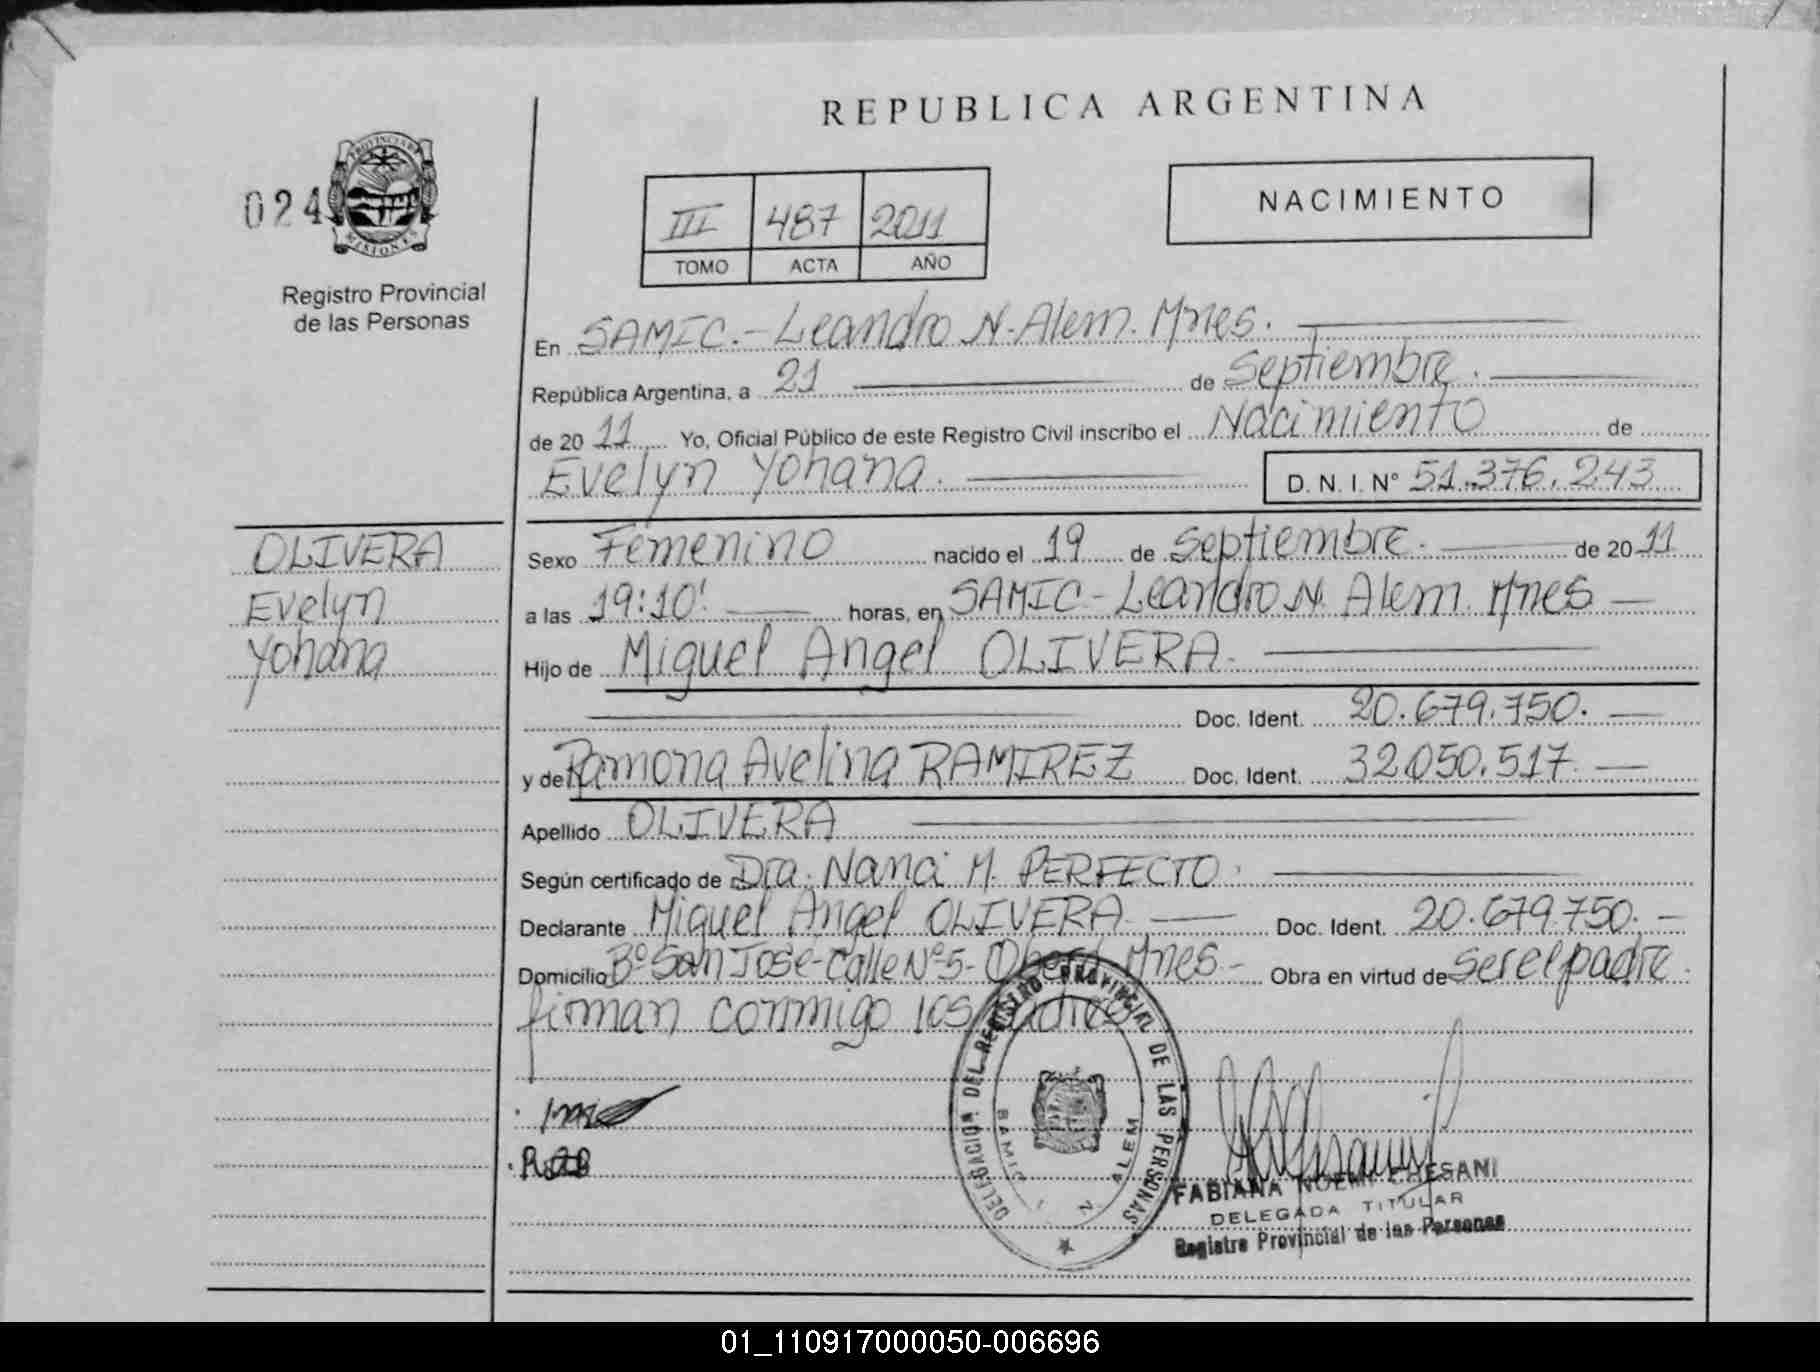 REPUBLICA ARGENTINA
024
PROVINCIA DE MISIONES
Registro Provincial
de las Personas
NACIMIENTO
III 487 2011
TOMO ACTA AÑO
En SAMIC.- Leandro N. Alem. Mnes.
República Argentina, a 21 de Septiembre.
de 20 11 Yo, Oficial Público de este Registro Civil inscribo el Nacimiento de
Evelyn Yohana. D. N. I. N° 51.376.243
OLIVERA
Evelyn
Yohana
Sexo Femenino nacido el 19 de Septiembre. de 20 11
a las 19:10' horas, en SAMIC - Leandro N. Alem. Mnes
Hijo de Miguel Angel OLIVERA.
Doc. Ident. 20.679.750.
y de Ramona Avelina RAMIREZ Doc. Ident. 32.050.517.
Apellido OLIVERA
Según certificado de Dra. Nanci M. PERFECTO.
Declarante Miguel Angel OLIVERA. Doc. Ident. 20.679.750.
Domicilio B° San José - Calle N° 5 - Oberá Mnes - Obra en virtud de ser el padre.
firman conmigo los padres
DELEGACION DEL REGISTRO PROVINCIAL DE LAS PERSONAS
SAMIC L. N. ALEM
FABIANA NOEMI CHESANI
DELEGADA TITULAR
Registro Provincial de las Personas
01_110917000050-006696